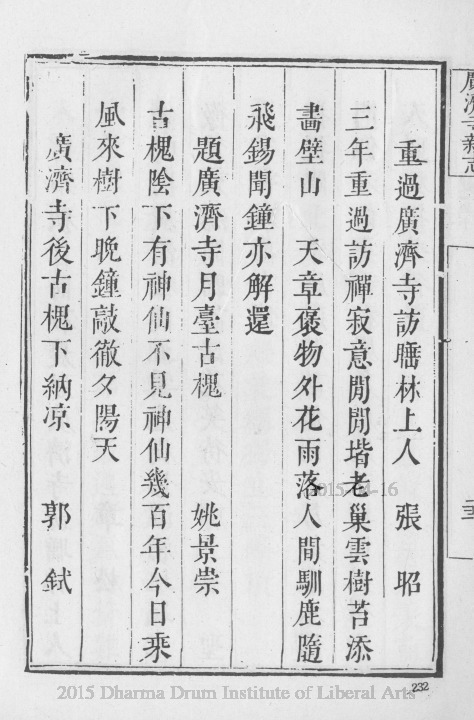 廣濟寺新志
重過廣濟寺訪㬟林上人　張　昭
三年重過訪禪寂意閒閒堦老巢雲樹苔添
畵壁山　天章褒物外花雨落人間馴鹿隨
飛錫聞鐘亦解還
題廣濟寺月臺古槐　姚景崇
古槐陰下有神仙不見神仙幾百年今日乘
風來樹下晚鐘敲徹夕陽天
廣濟寺後古槐下納凉　郭　弑
2015-04-16
232
2015 Dharma Drum Institute of Liberal Arts